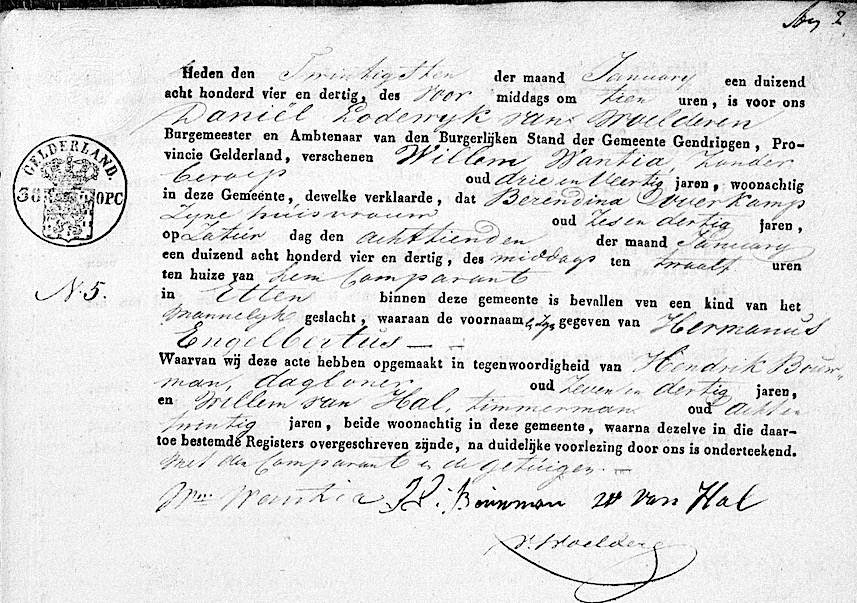 2
Heden den Twintigsten der maand January een duizend
acht honderd vier en dertig, des Voor middags om tien uren, is voor ons
Daniël Lodewyk van Woelderen
Burgemeester en Ambtenaar van den Burgerlijken Stand der Gemeente Gendringen, Pro-
vincie Gelderland, verschenen Willem Wantia, Zonder
beroep oud drie en Veertig jaren, woonachtig
in deze Gemeente, dewelke verklaarde, dat Berendina Overkamp
Zyne huisvrouw oud Zes en dertig jaren,
op Zatur dag den achttienden der maand January
een duizend acht honderd vier en dertig, des middags ten twaalf uren
ten huize van hem Comparant
in Etten binnen deze gemeente is bevallen ven een kind van het
Mannelyk geslacht, waaraan de voornaam gegeven van Hermanus
Engelbertus
Waarvan wij deze acte hebben opgemaakt in tegenwoordigheid van Hendrik Bouw-
man, dagloner oud Zeven en dertig jaren,
en Willem van Hal, timmerman oud acht en
twintig jaren, beide woonachtig in deze gemeente, waarna dezelve in die daar-
toe bestemde Registers overgeschreven zijnde, na duidelijke voorlezing door ons is onderteekend.
Met den Comparant en de getuigen.
Wm Wantia H: Bouwman W van Hal
GELDERLAND.
30 OPC
N. 5.